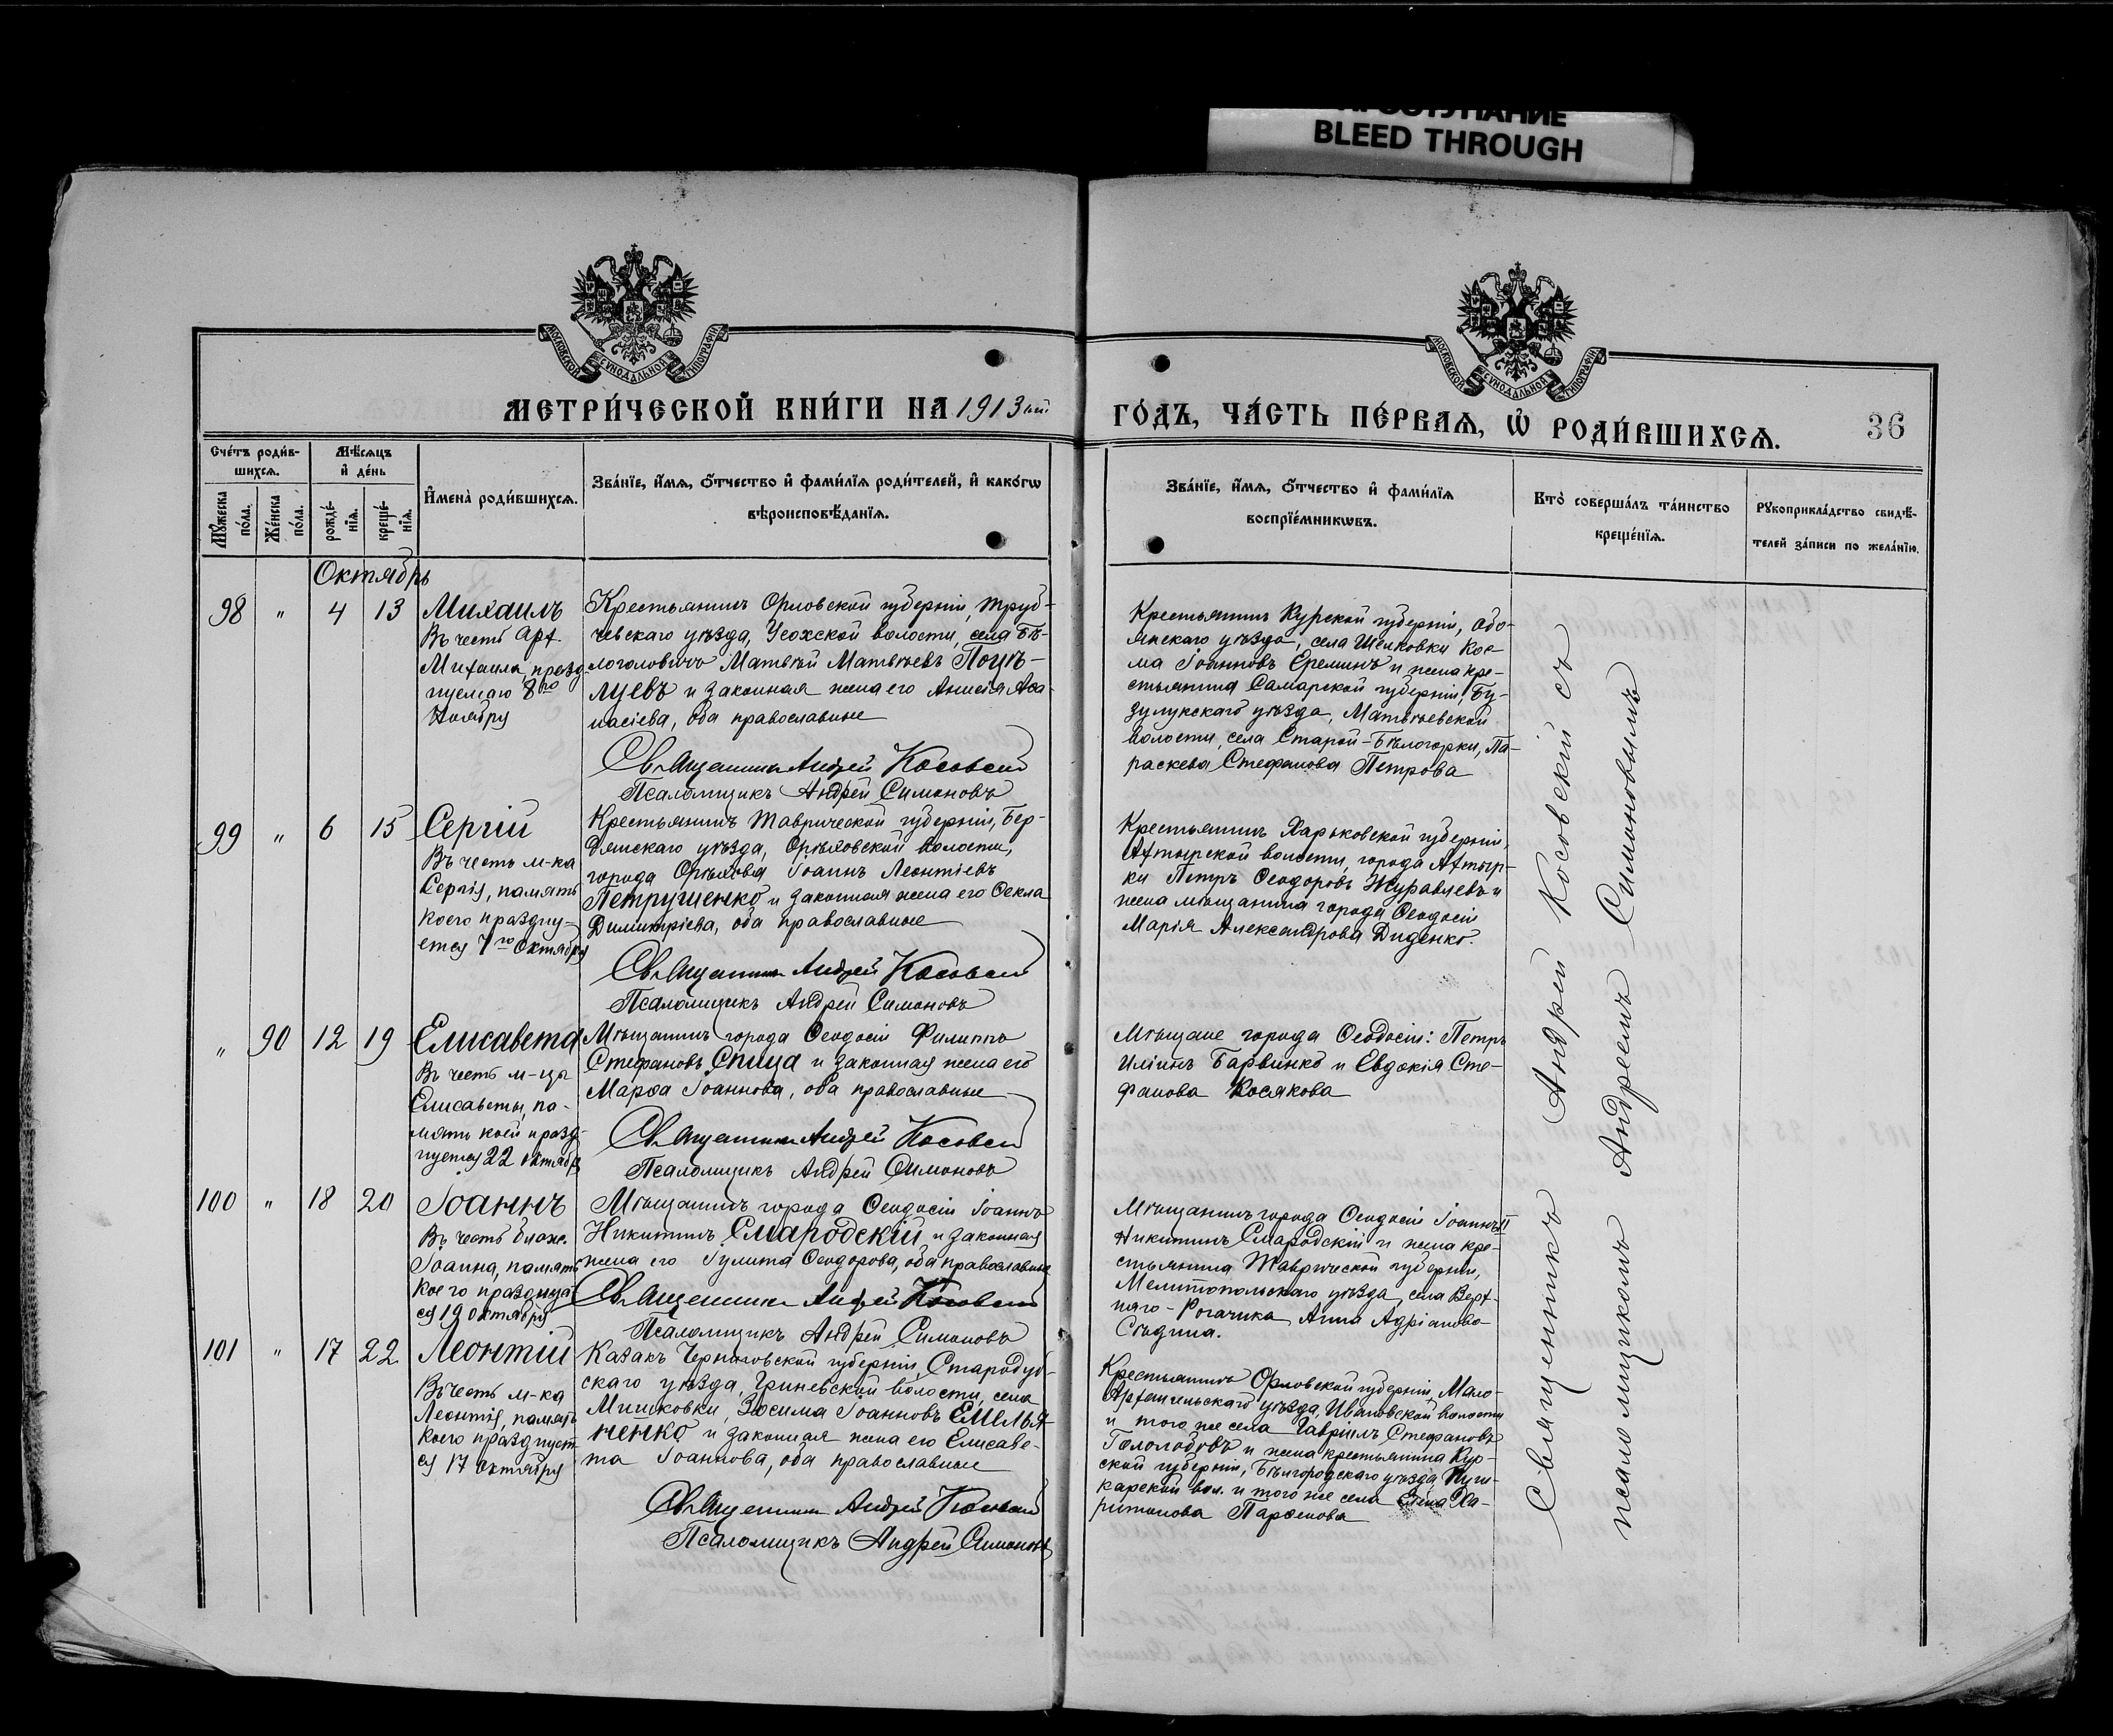 ПРОСТУПАНИЕ
BLEED THROUGH
МОСКОВСКОЙ СѴНОДАЛЬНОЙ ТИПОГРАФІИ
МОСКОВСКОЙ СѴНОДАЛЬНОЙ ТИПОГРАФІИ
МЕТРИ́ЧЕСКОЙ КНИ́ГИ НА 1913 ый
ГО́ДЪ, ЧА́СТЬ ПЕ́РВАѦ, Ѡ҆ РОДИ́ВШИХСѦ.
36
Сче́тъ роди́в-
шихсѧ.
Мꙋ́жеска
по́ла.
Же́нска
по́ла.
Мѣ́сѧцъ
и҆ де́нь
рожде́-
нїѧ.
креще́-
нїѧ.
И҆мена̀ роди́вшихсѧ.
Зва́нїе, и҆́мѧ, ѻ҆́тчество и҆ фами́лїѧ роди́телей, и҆ како́гѡ
вѣроисповѣ́данїѧ.
Зва́нїе, и҆́мѧ, ѻ҆́тчество и҆ фами́лїѧ
воспрїе́мникѡвъ.
Кто̀ соверша́лъ та́инство
креще́нїѧ.
Рꙋкоприкла́дство свидѣ́-
телей за́писи по жела́нїю.
Октябрь
98 " 4 13 Михаилъ
Въ честь Арх.
Михаила, празд-
нуемаго 8го
Ноября
Крестьянинъ Орловской губерніи, Труб-
чевскаго уѣзда, Усохской волости, села Бѣ-
логоловичъ Матвѣй Матвѣевъ Поцѣ-
луевъ и законная жена его Анисія Аѳа-
насіева, оба православные
Священникъ Андрей Косовскій
Псаломщикъ Андрей Симоновъ
Крестьянинъ Курской губерніи, Обо-
янскаго уѣзда, села Шелковки Кос
ма Іоанновъ Ереминъ и жена кре-
стьянина Самарской губерніи, Бу-
зулукскаго уѣзда, Матвѣевской
волости, села Старой-Бѣлогорки, Па-
раскева Стефанова Петрова
99 " 6 15 Сергій
Въ честь м-ка
Сергія, память
коего праздну-
ется 7го Октября
Крестьянинъ Таврической губерніи, Бер-
дянскаго уѣзда, Орѣховской волости,
города Орѣхова Іоаннъ Леонтіевъ
Петрушенко и законная жена его Ѳекла
Димитріева, оба православные
Священникъ Андрей Косовскій
Псаломщикъ Андрей Симоновъ
Крестьянинъ Харьковской губерніи,
Ахтырской волости, города Ахтыр-
ки Петръ Ѳеодоровъ Журавлевъ и
жена мѣщанина города Ѳеодосіи
Марія Александрова Диденко.
" 90 12 19 Елисавета
Въ честь м-цы
Елисаветы, па-
мять коей празд-
нуется 22 октября
Мѣщанинъ города Ѳеодосіи Филиппъ
Стефановъ Спица и законная жена его
Марѳа Іоаннова, оба православные
Священникъ Андрей Косовскій
Псаломщикъ Андрей Симоновъ
Мѣщане города Ѳеодосіи: Петръ
Иліинъ Барвинко и Евдокія Сте-
фанова Косякова
100 " 18 20 Іоаннъ
Въ честь блаж.
Іоанна, память
коего праздnует
ся 19 октября
Мѣщанинъ города Ѳеодосіи Іоаннъ
Никитинъ Смародскій и законная
жена его Іулита Ѳеодорова, оба православные
Священникъ Андрей Косовскій
Псаломщикъ Андрей Симоновъ
Мѣщанинъ города Ѳеодосіи Іоаннъ II
Никитинъ Смародскій и жена кре-
стьянина Таврической губерніи,
Мелитопольскаго уѣзда, села Верх-
няго-Рогачика Анна Адріанова
Сѣдина.
101 " 17 22 Леонтій
Въ честь м-ка
Леонтія, память
коего празднует
ся 17 Октября
Казакъ Черниговской губерніи, Стародуб-
скаго уѣзда, Гриневской волости, села
Мишковки, Зосима Іоанновъ Емелья-
ненко и законная жена его Елисаве-
та Іоаннова, оба православные
Священникъ Андрей Косовскій
Псаломщикъ Андрей Симоновъ
Крестьянинъ Орловской губерніи, Мало-
Архангельскаго уѣзда, Ивановской волости
и того же села Гавріилъ Стефановъ
Гололобовъ и жена крестьянина Кур-
ской губерніи, Бѣлгородскаго уѣзда, Пуш-
карской вол. и того же села Елена Ха-
ритонова Парѳенова
Священникъ Андрей Косовскій съ
псаломщикомъ Андреемъ Симоновымъ